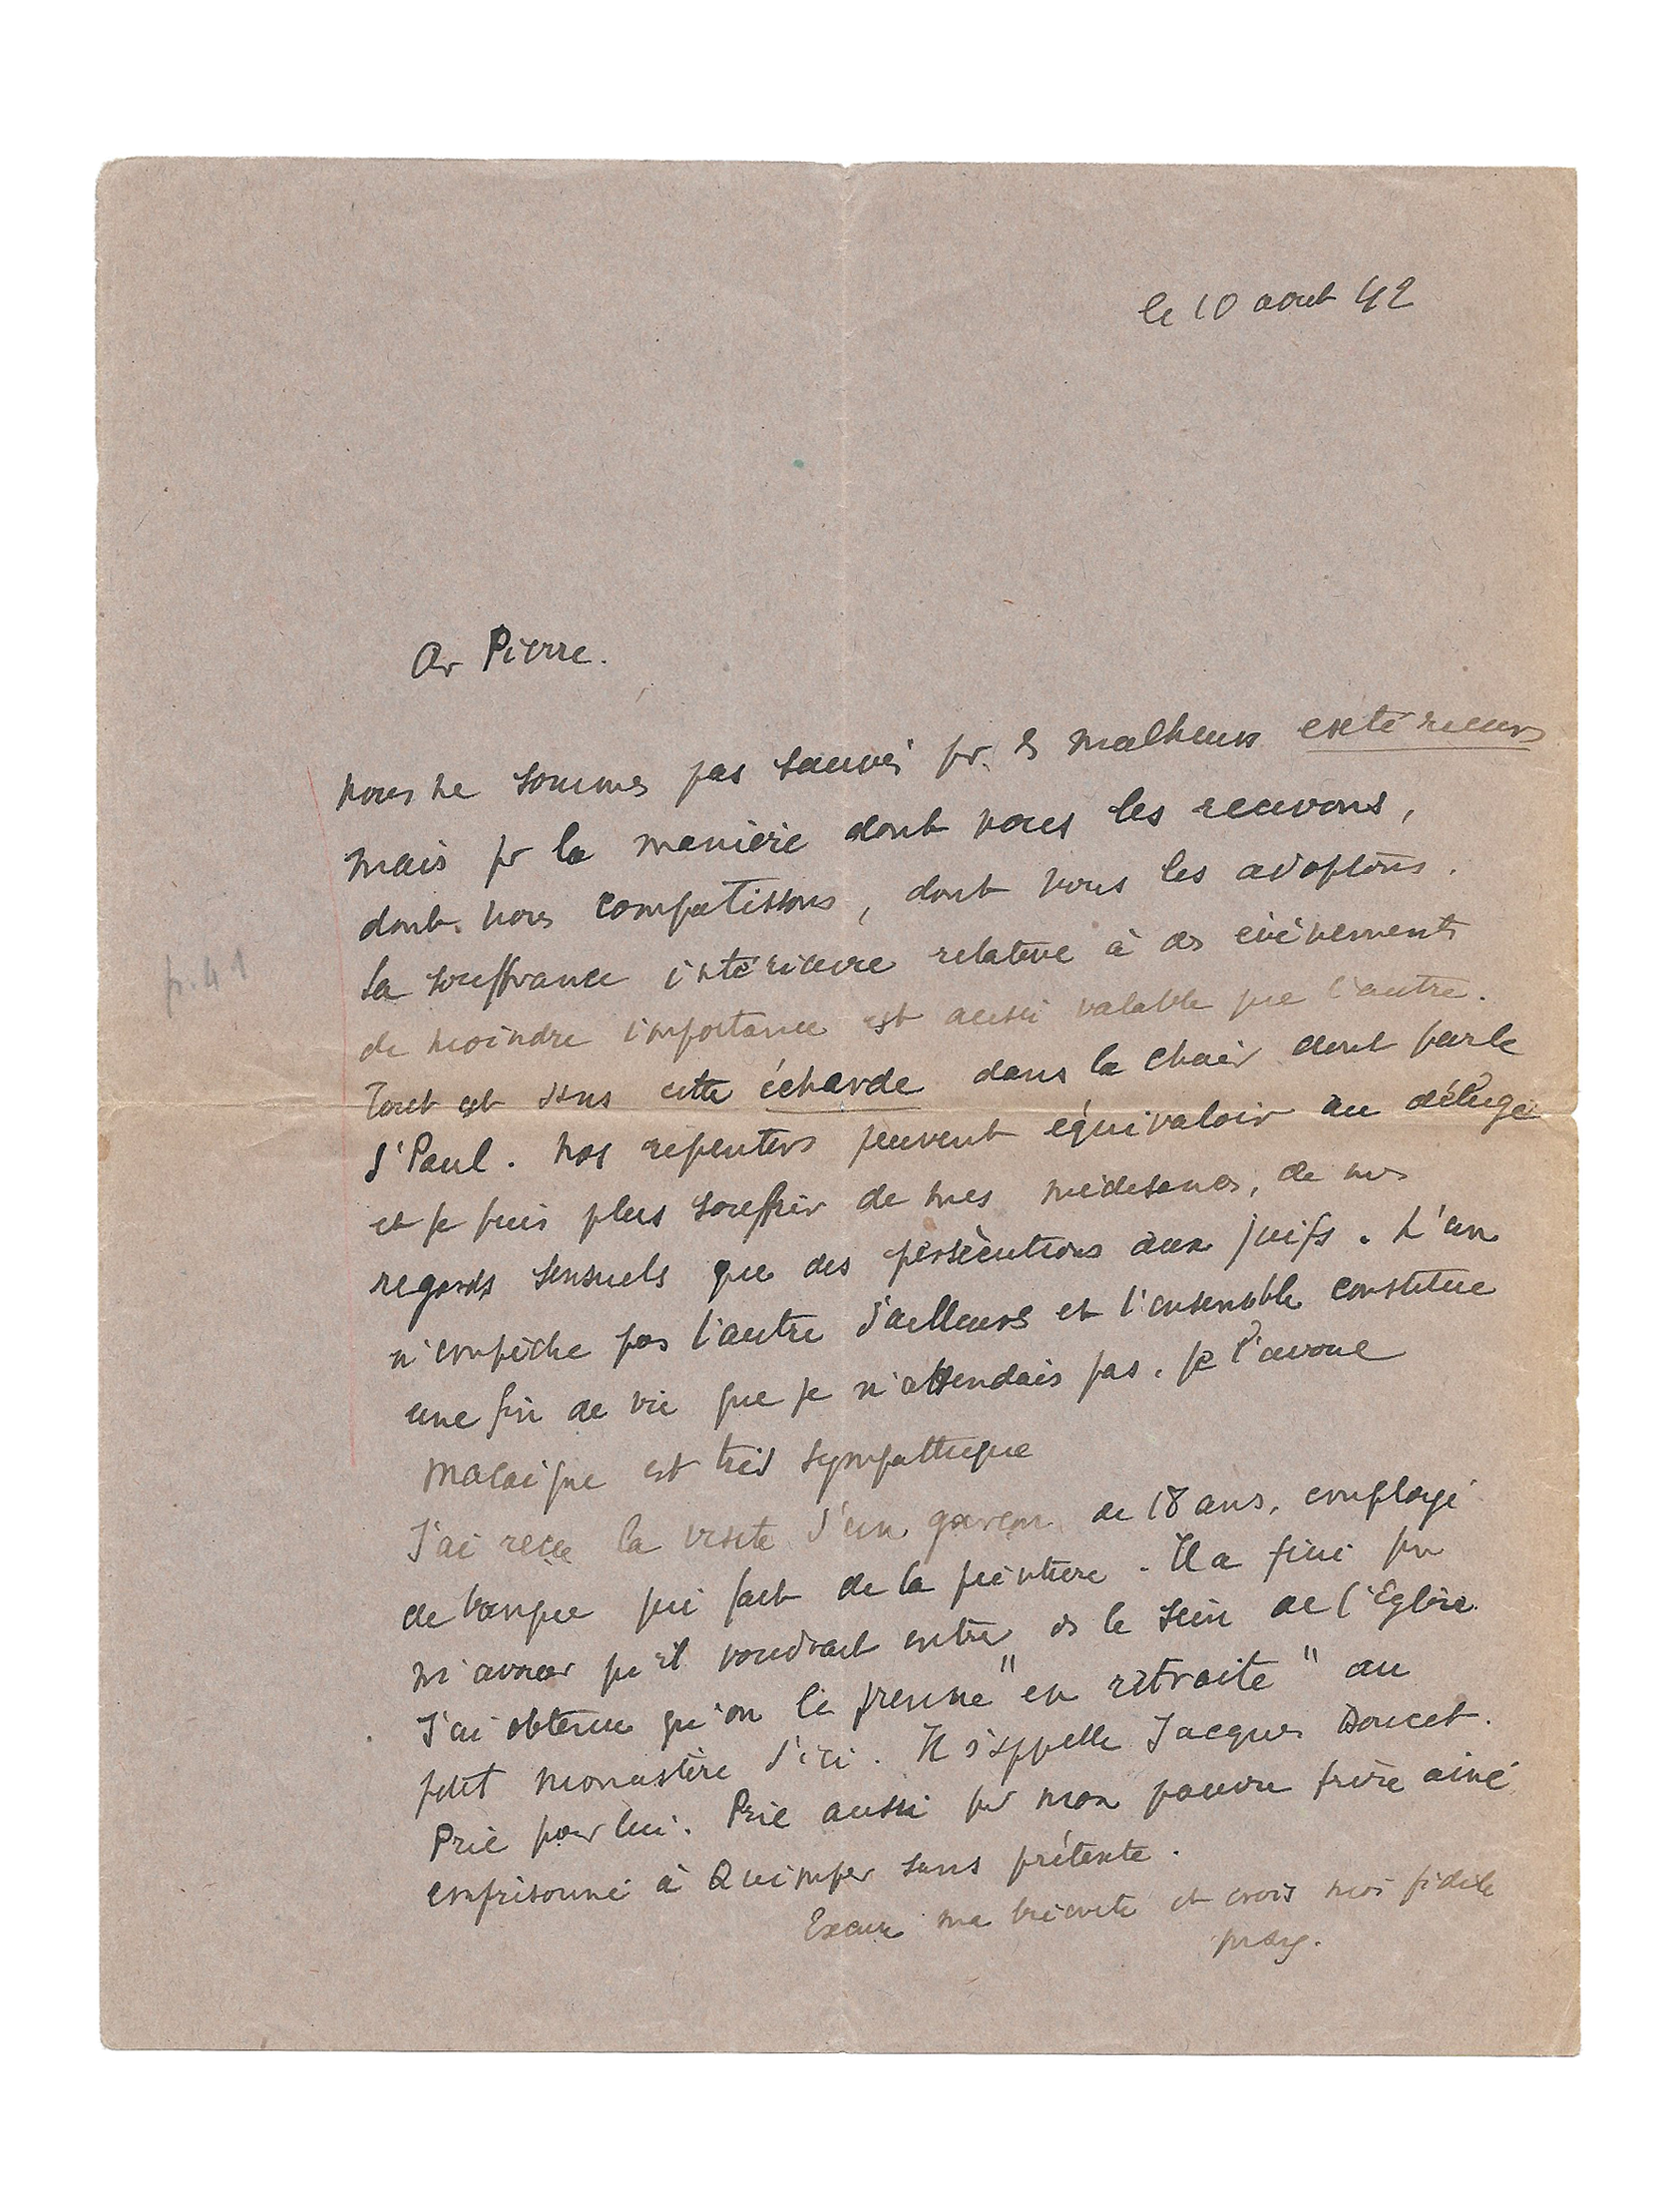 le 10 aout 42
Cr Pierre.
nous ne sommes pas sauvés pr les malheurs extérieurs
mais pr la manière dont nous les recevons,
dont nous compatissons, dont nous les adoptons.
La souffrance intérieure relative à des évènements
p. 41
de moindre importance est aussi valable que l'autre.
Tout est dans cette écharde dans la chair dont parle
St Paul. Nos repentirs peuvent équivaloir au déluge
et je puis plus souffrir de mes médisances, de mes
regards sensuels que des persécutions aux juifs. L'un
n'empêche pas l'autre d'ailleurs et l'ensemble constitue
une fin de vie que je n'attendais pas. je l'avoue
est très sympathique
J'ai reçu la visite d'un garçon de 18 ans, employé
de banque qui fait de la peinture. Il a fini par
m'avouer qu'il voudrait entrer ds le sein de l'Eglise.
J'ai obtenu qu'on le prenne "en retraite" au
petit monastère d'ici. Il s'appelle Jacques Doucet.
Prie pour lui. Prie aussi pr mon pauvre frère ainé
emprisonné à Quimper sans prétexte.
Excuse ma brièveté et crois moi fidèle